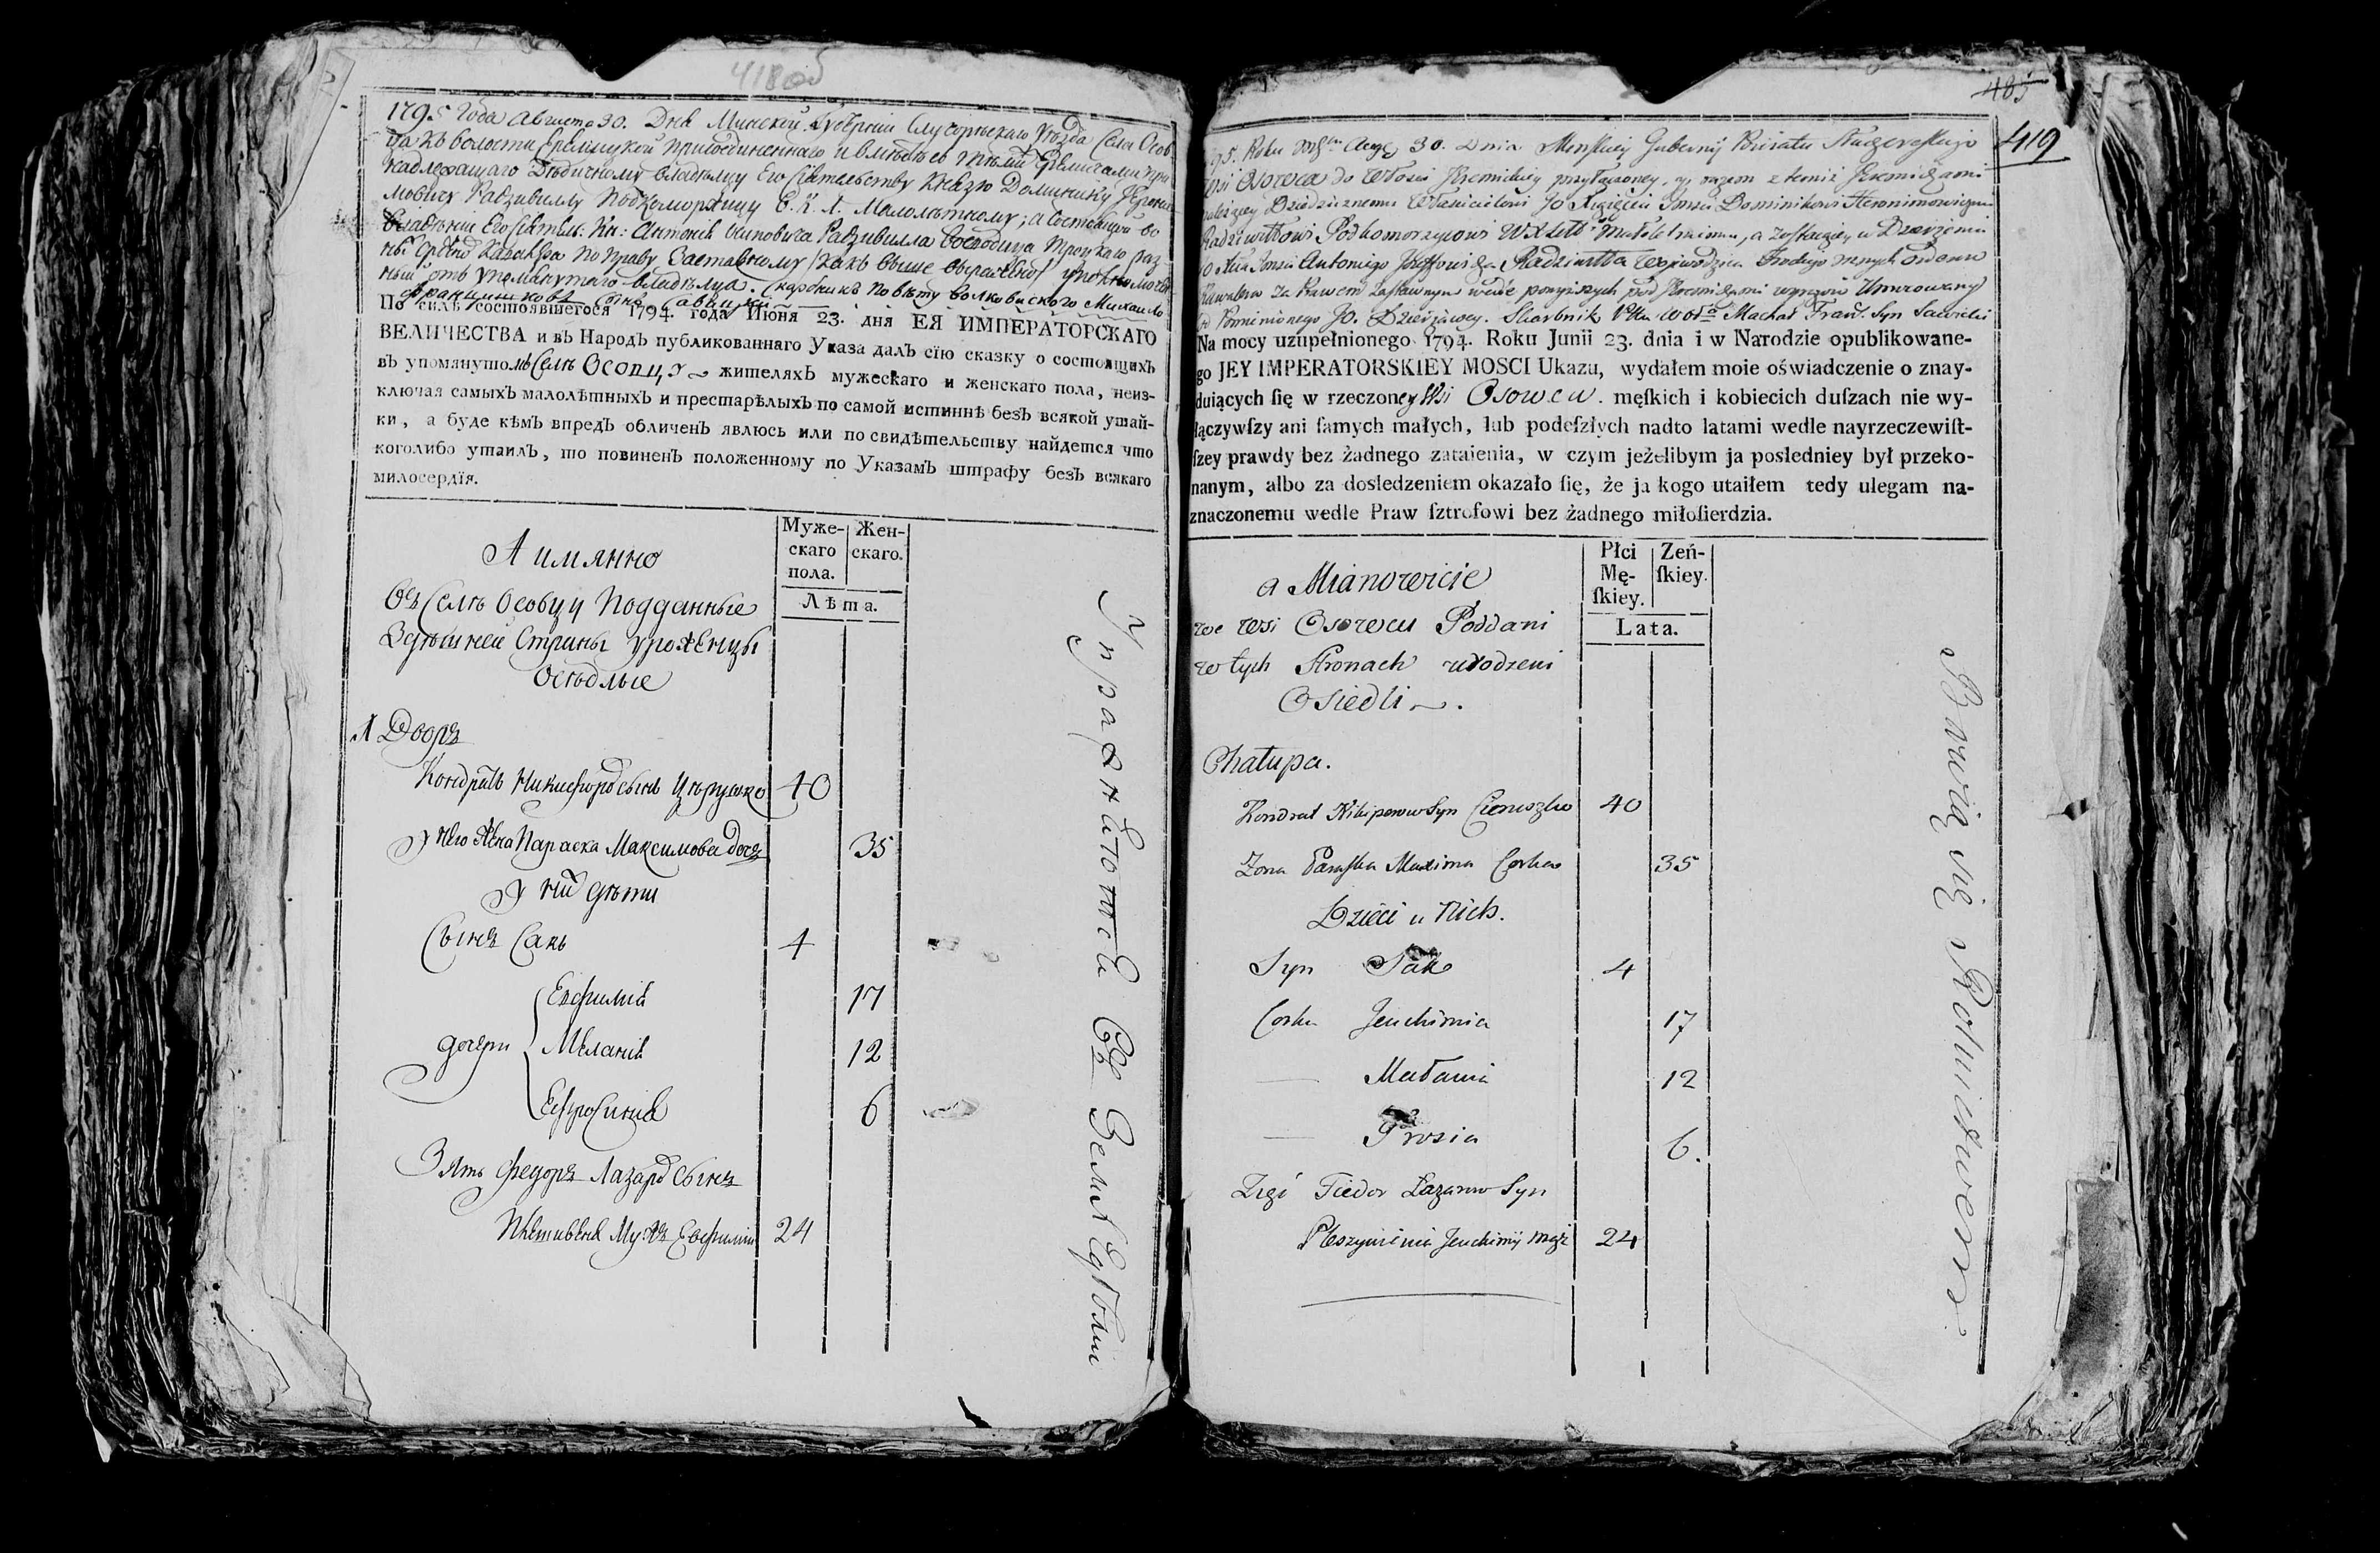 418об
1795 года Августа 30. Дня Минской Губернии Слуцорецкаго Уезда Села Осов
ца къ волости присоединеннаго и вместе съ теми
надлежащаго Дедичному владельцу Его Сиятельству Князю Доминику
мовичу Радзивиллу Подкоморжицу В. К. Л. Малолетному; а состоящаго во
владение Его Сиятель: Кн: Антония Иосиповича Радзивилла Воеводица Троцкаго раз
ны Ордено Кавалера по праву Заставному /какъ выше выражено/ уполномоч
ный отъ упомянутаго владельца. Скарбникъ Повету Волковыского Михайло
Францишковъ сынъ Савицкий
По силѣ состоявшегося 1794. года Июня 23. дня ЕЯ ИМПЕРАТОРСКАГО
ВЕЛИЧЕСТВА и въ НародЪ публикованнаго Указа далЪ сїю сказку о состоящихЪ
въ упомянутомъ Селѣ Осовцу жителяхЪ мужескаго и женскаго пола, неиз-
ключая самыхЪ малолѣтныхЪ и престарѣлыхЪ по самой истиннѣ безЪ всякой утай-
ки, а буде кѣмЪ впредЪ обличенЪ явлюсь или по свидѣтельству найдется что
коголибо утаилЪ, то повиненЪ положенному по УказамЪ штрафу безЪ всякаго
милосердїя.
А имянно
Муже-
скаго
пола.
Жен-
скаго.
Лѣта.
Въ Селѣ Осовцу Подданные
Здѣшней Страны уроженцы
Осѣдлые
1 Дворъ
Кондратъ Никифоровъ сынъ Церушко 40
У него жена Параска Максимова дочь 35
У них дѣти
Сынъ Сакъ 4
дочери Евфимія 17
Меланія 12
Ефросинія 6
Зять Федоръ Лазаровъ Сынъ
Мужъ Евфиміи 24
Упражняются въ Земледѣліи
485
419
1795. Roku Aug 30. Dnia Minskiey Gubernij Powiatu
wsi Osowca do Włosci przyłączoney, y razem z temiż
należącey Dziedzicznemu Włascicielowi JO Xięzęciu Jmsci Dominikowi Heronimowiczowi
Radziwiłłowi Podkomorzycowi W X Litt małoletniemu, a zostaiącey w Dzierzeniu
JO Xcia Jmsci Antoniego Jozefowicza Radziwiłła Wojewodzica Trockiego roznych Orderow
Kawalera za Prawem zastawnym wedle pod wyrazow Umocowany
od Pomienionego JO. Dzierżawcy. Skarbnik Michał Fran. Syn Sawicki
Na mocy uzupełnionego 1794. Roku Junii 23. dnia i w Narodzie opublikowane-
go JEY IMPERATORSKIEY MOSCI Ukazu, wydałem moie oświadczenie o znay-
duiących ſię w rzeczoney Wsi Osowcu. męſkich i kobiecich duſzach nie wy-
łączywſzy ani ſamych małych, lub podeſzłych nadto latami wedle nayrzeczewiſt-
ſzey prawdy bez żadnego zataienia, w czym jeżelibym ja posledniey był przeko-
nanym, albo za dosledzeniem okazało ſię, że ja kogo utaiłem tedy ulegam na-
znaczonemu wedle Praw ſztrofowi bez żadnego miłoſierdzia.
a Mianowicie
Płci
Mę-
ſkiey.
Zeń-
ſkiey.
Lata.
we wsi Osowcu Poddani
w tych Stronach urodzeni
Osiedli.
Chałupa.
Kondrat Nikiperow Syn Cieruszko 40
Zona Paraska Maxima Corka 35
Dzieci u Nich.
Syn Sak 4
Corka Jeuchimia 17
— Małania 12
— Prosia 6.
Zięć Fiedor Łazarow Syn
Jeuchimij mąż 24
Bawią się Rolnictwem